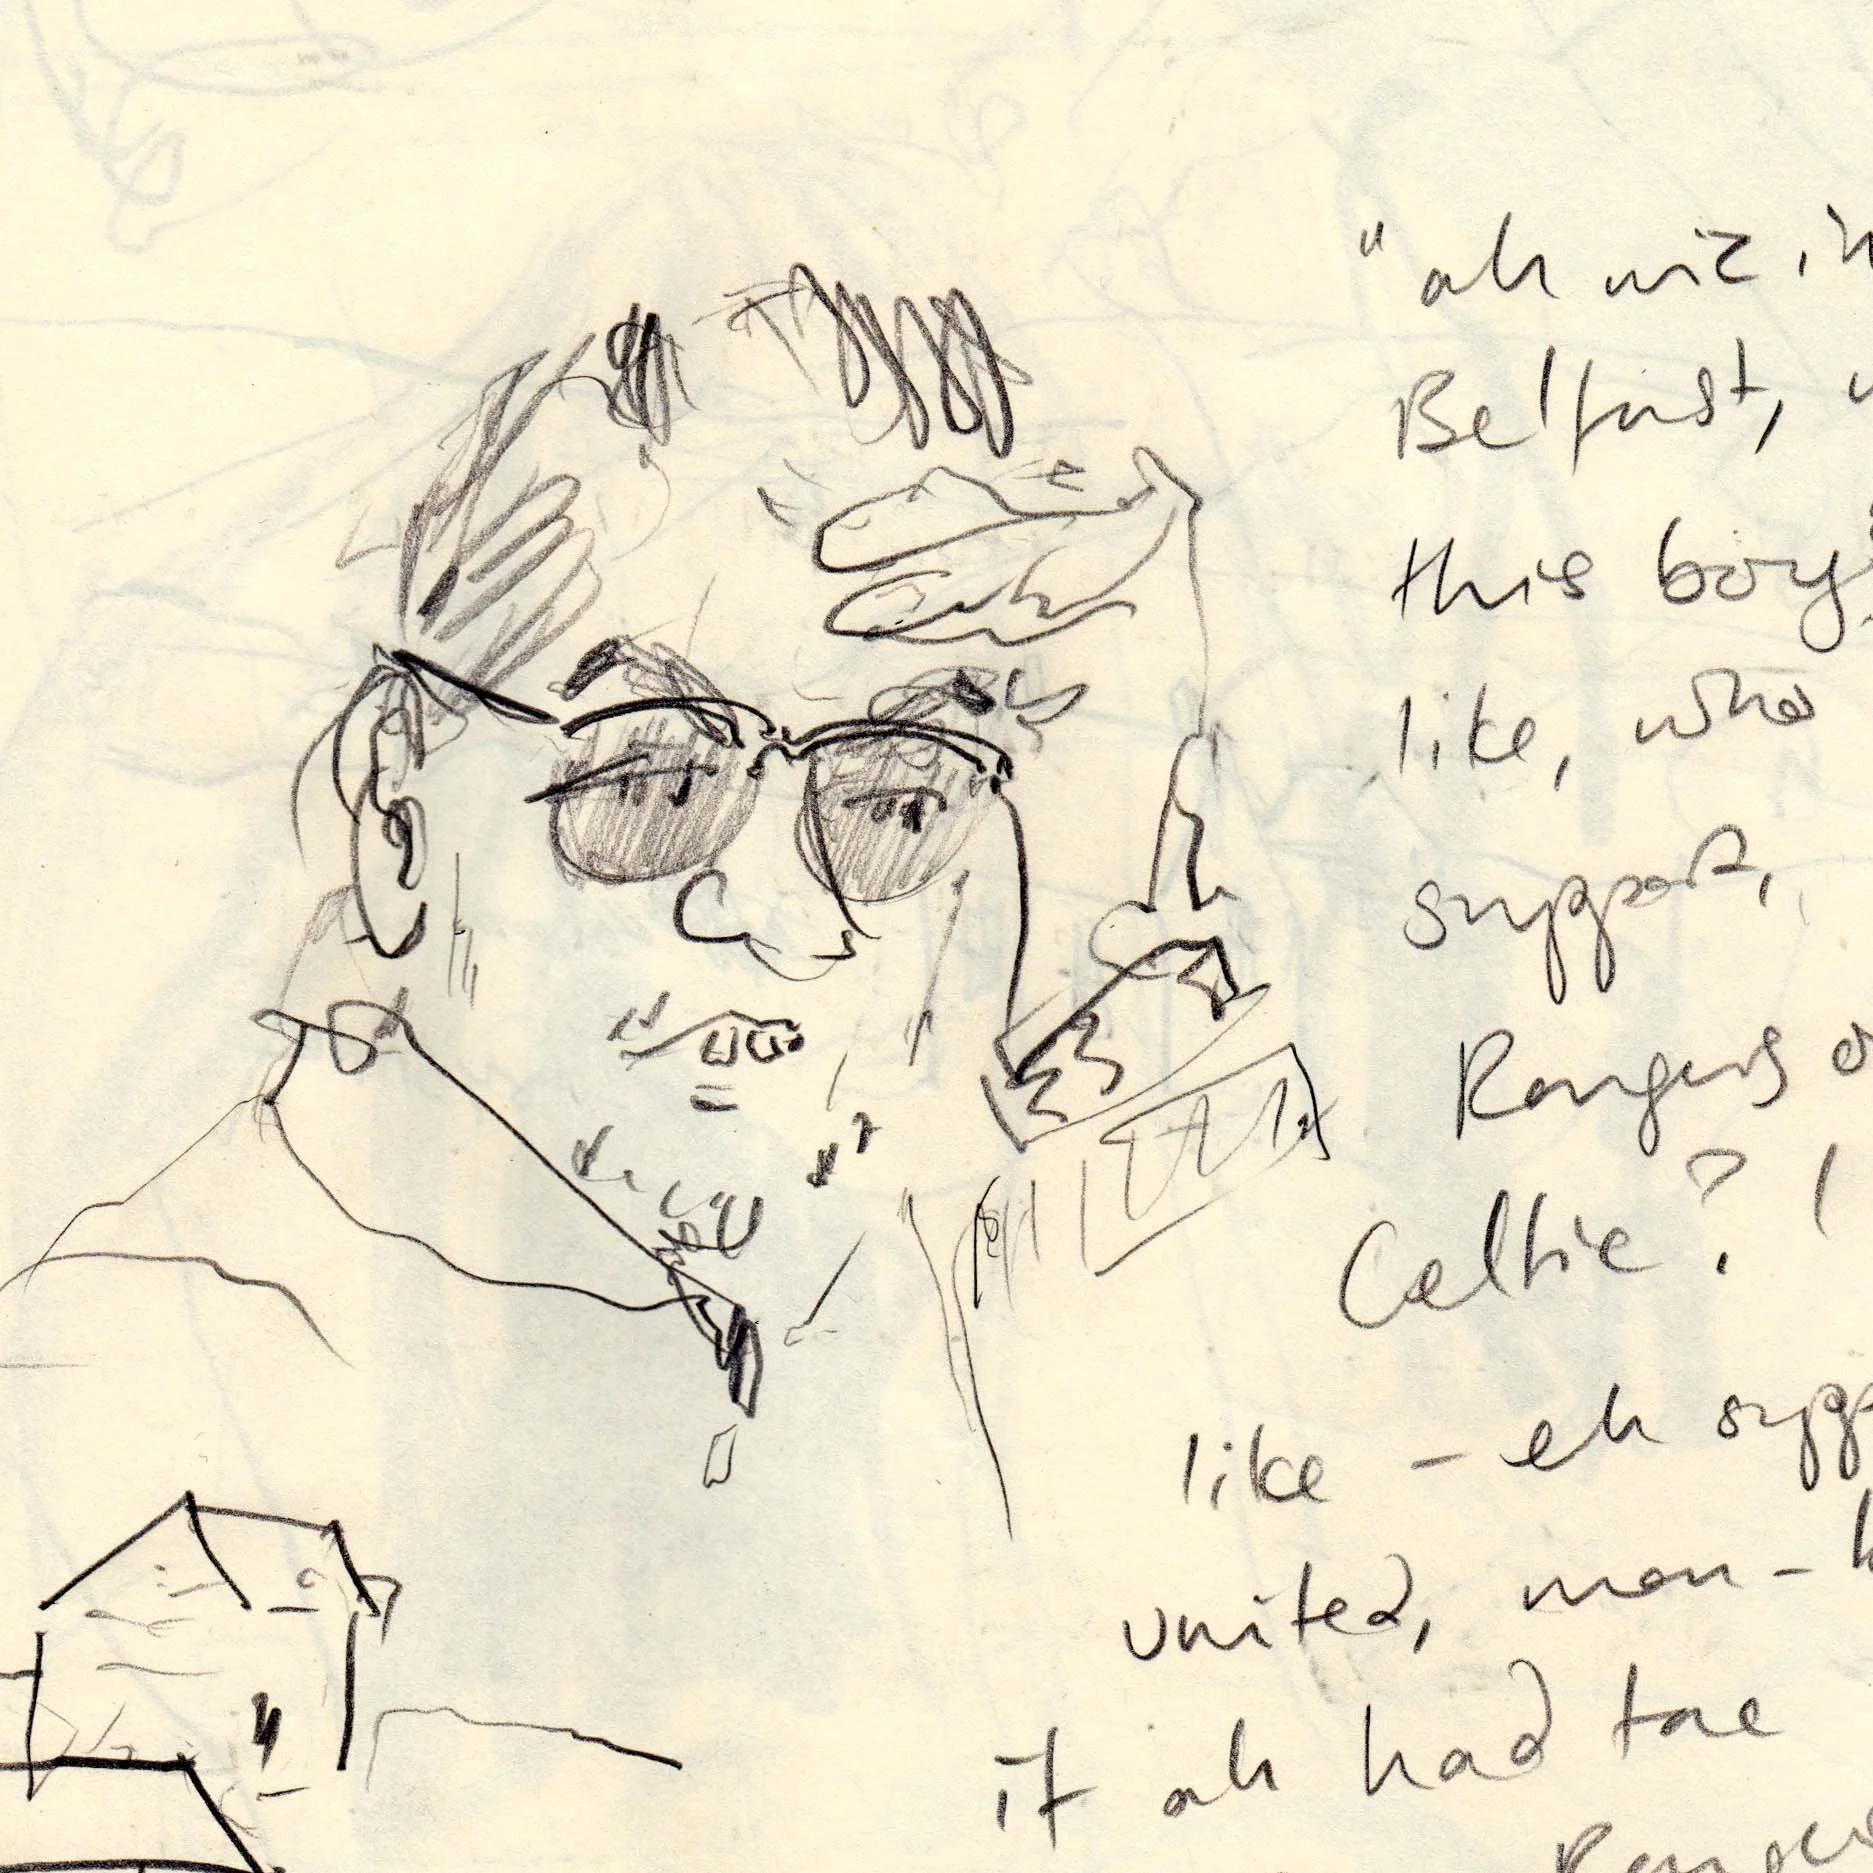 "ah wiz in
Belfast,
this boy's
like, who
support,
Rangers o
Celtic? I
like - eh supp
united, man -
if ah had tae